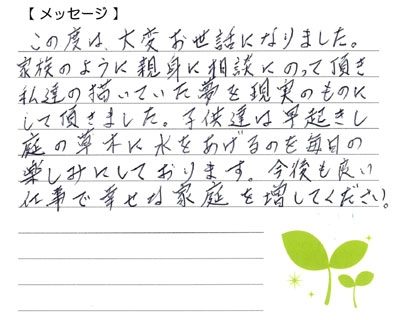 【メッセージ】
この度は、大変お世話になりました。
家族のように親身に相談にのって頂き
私達の描いていた夢を現実のものに
して頂きました。子供達は早起きし
庭の草木に水をあげるのを毎日の
楽しみにしております。今後も良い
仕事で幸せな家庭を増してください。